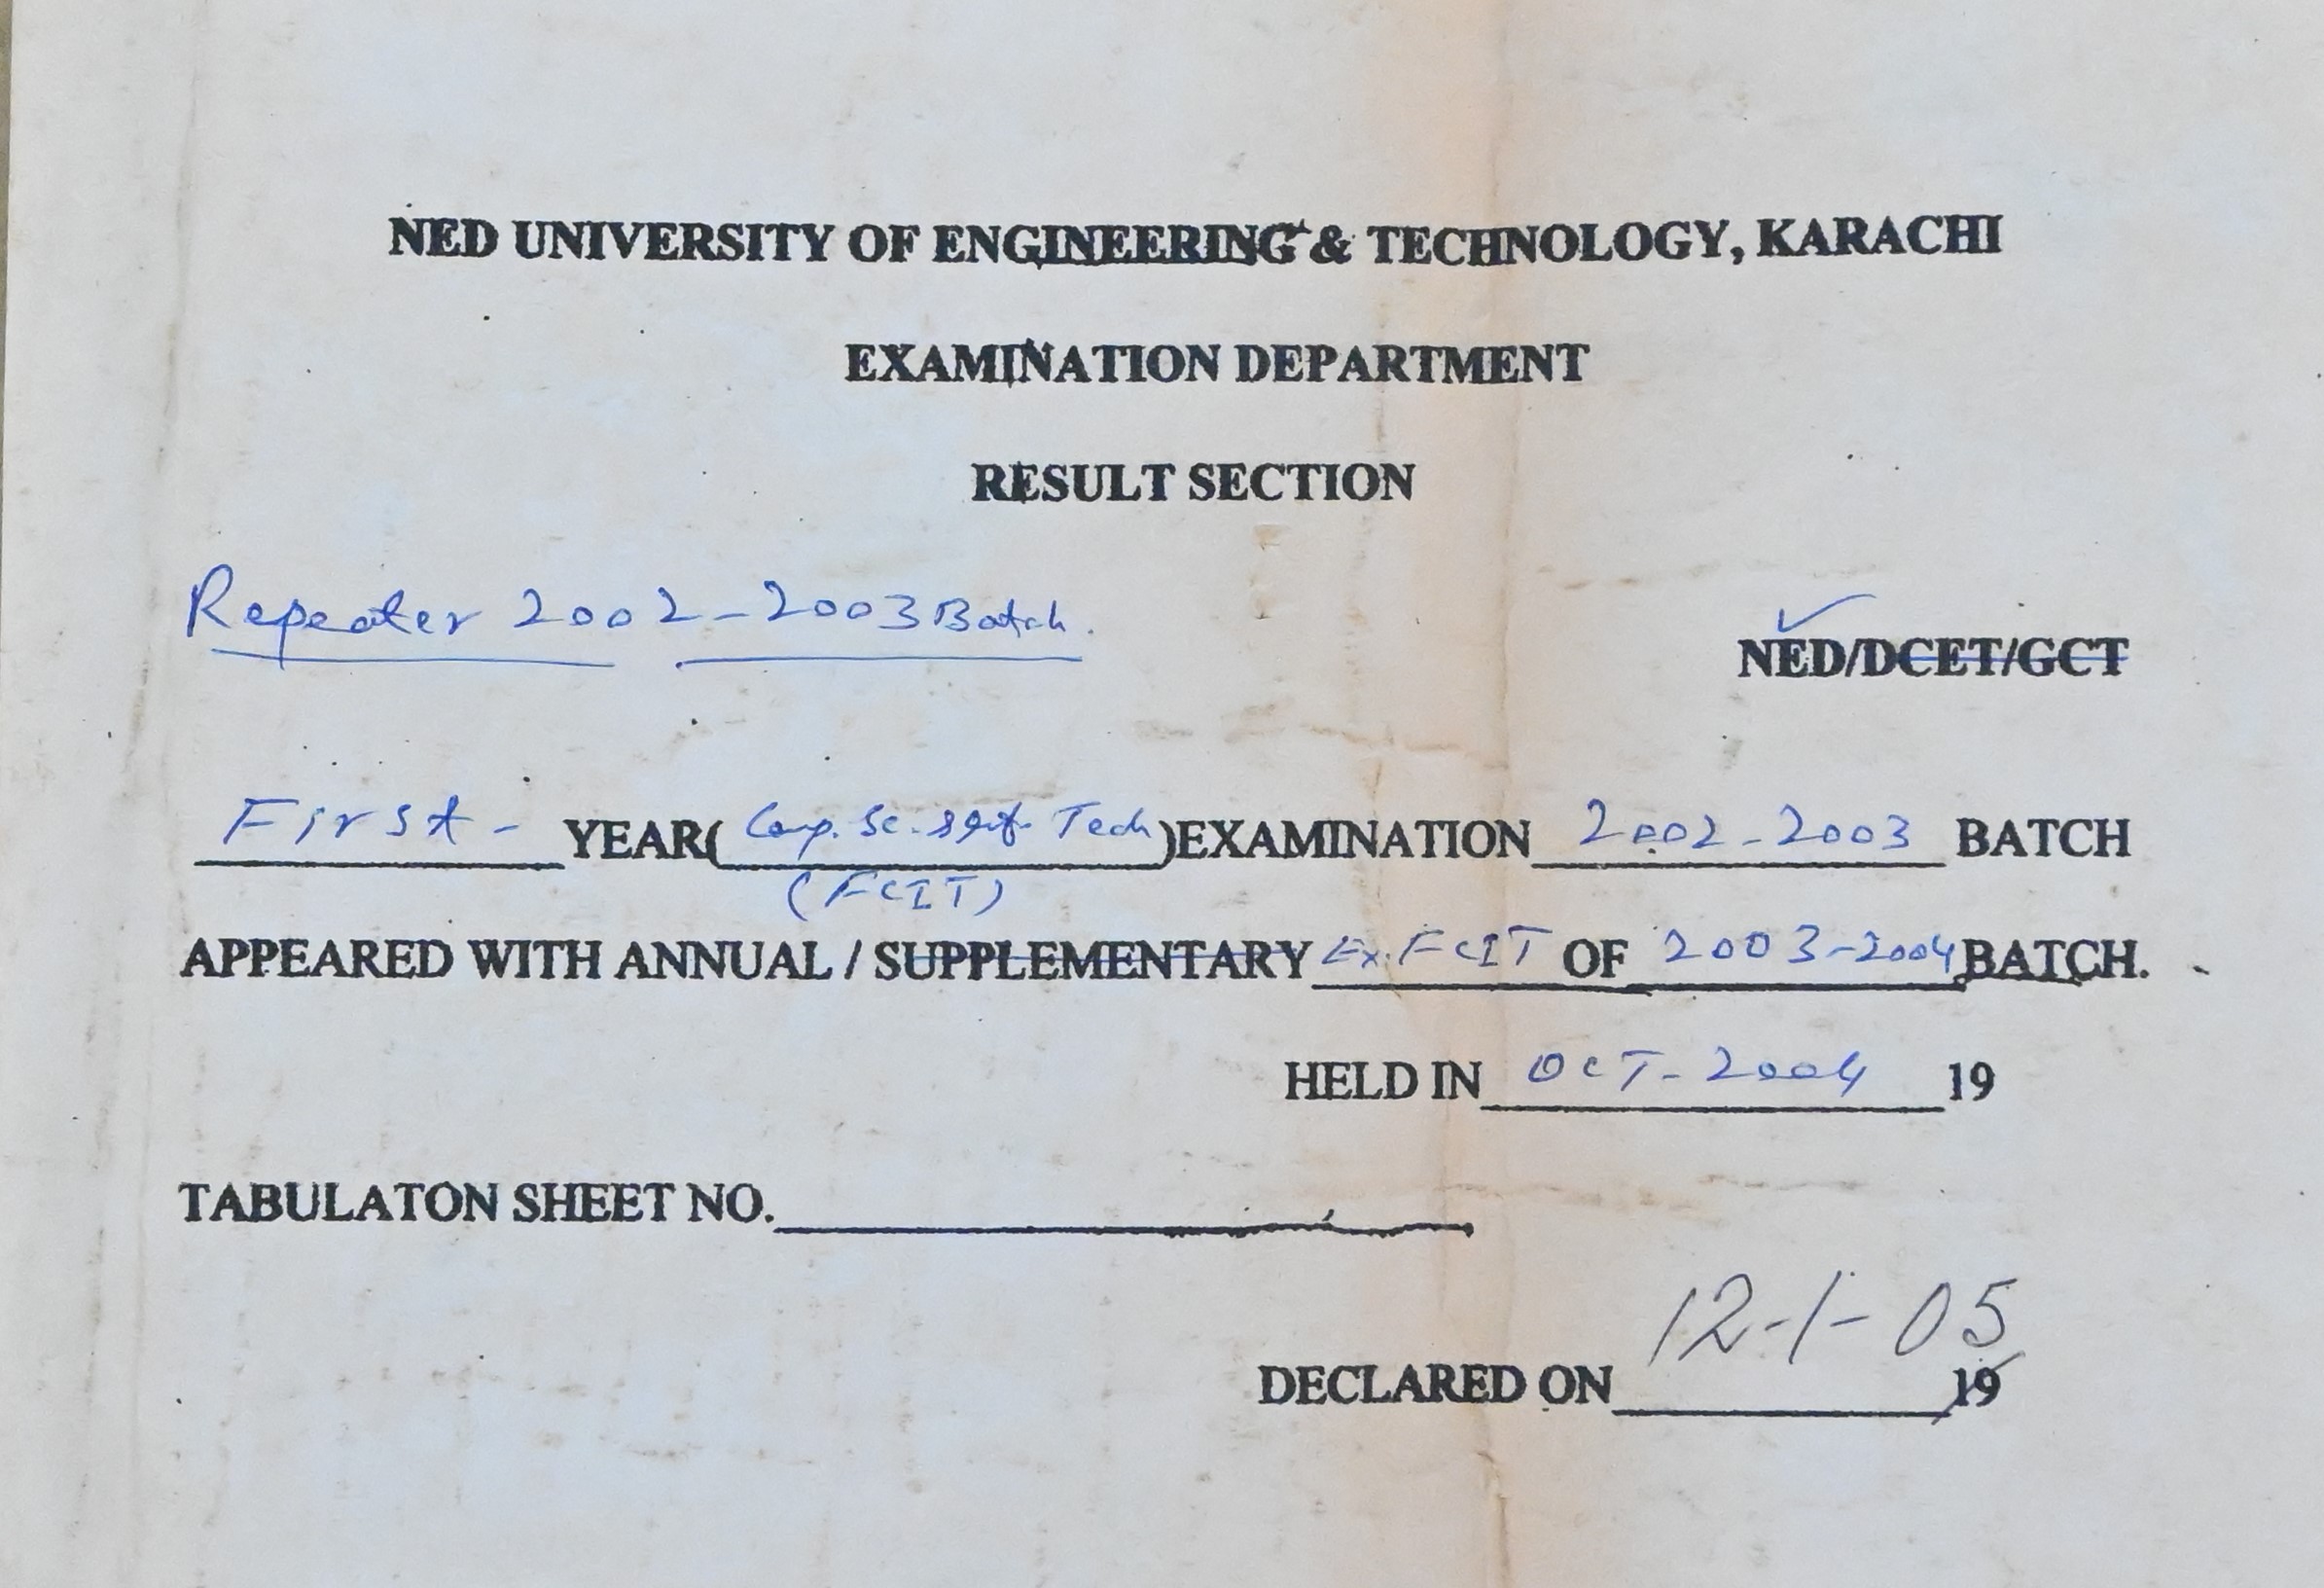 NED UNIVERSITY OF ENGINEERING & TECHNOLOGY, KARACHI
EXAMINATION DEPARTMENT
RESULT SECTION
Repeater 2002-2003 Batch.
NED/DCET/GCT
First - YEAR( Comp. Sc. & Inf. Tech )EXAMINATION 2002-2003 BATCH
(FCIT)
APPEARED WITH ANNUAL / SUPPLEMENTARY Ex. FCIT OF 2003-2004 BATCH.
HELD IN OCT-2004 19
TABULATON SHEET NO.
12-1-05
DECLARED ON 19